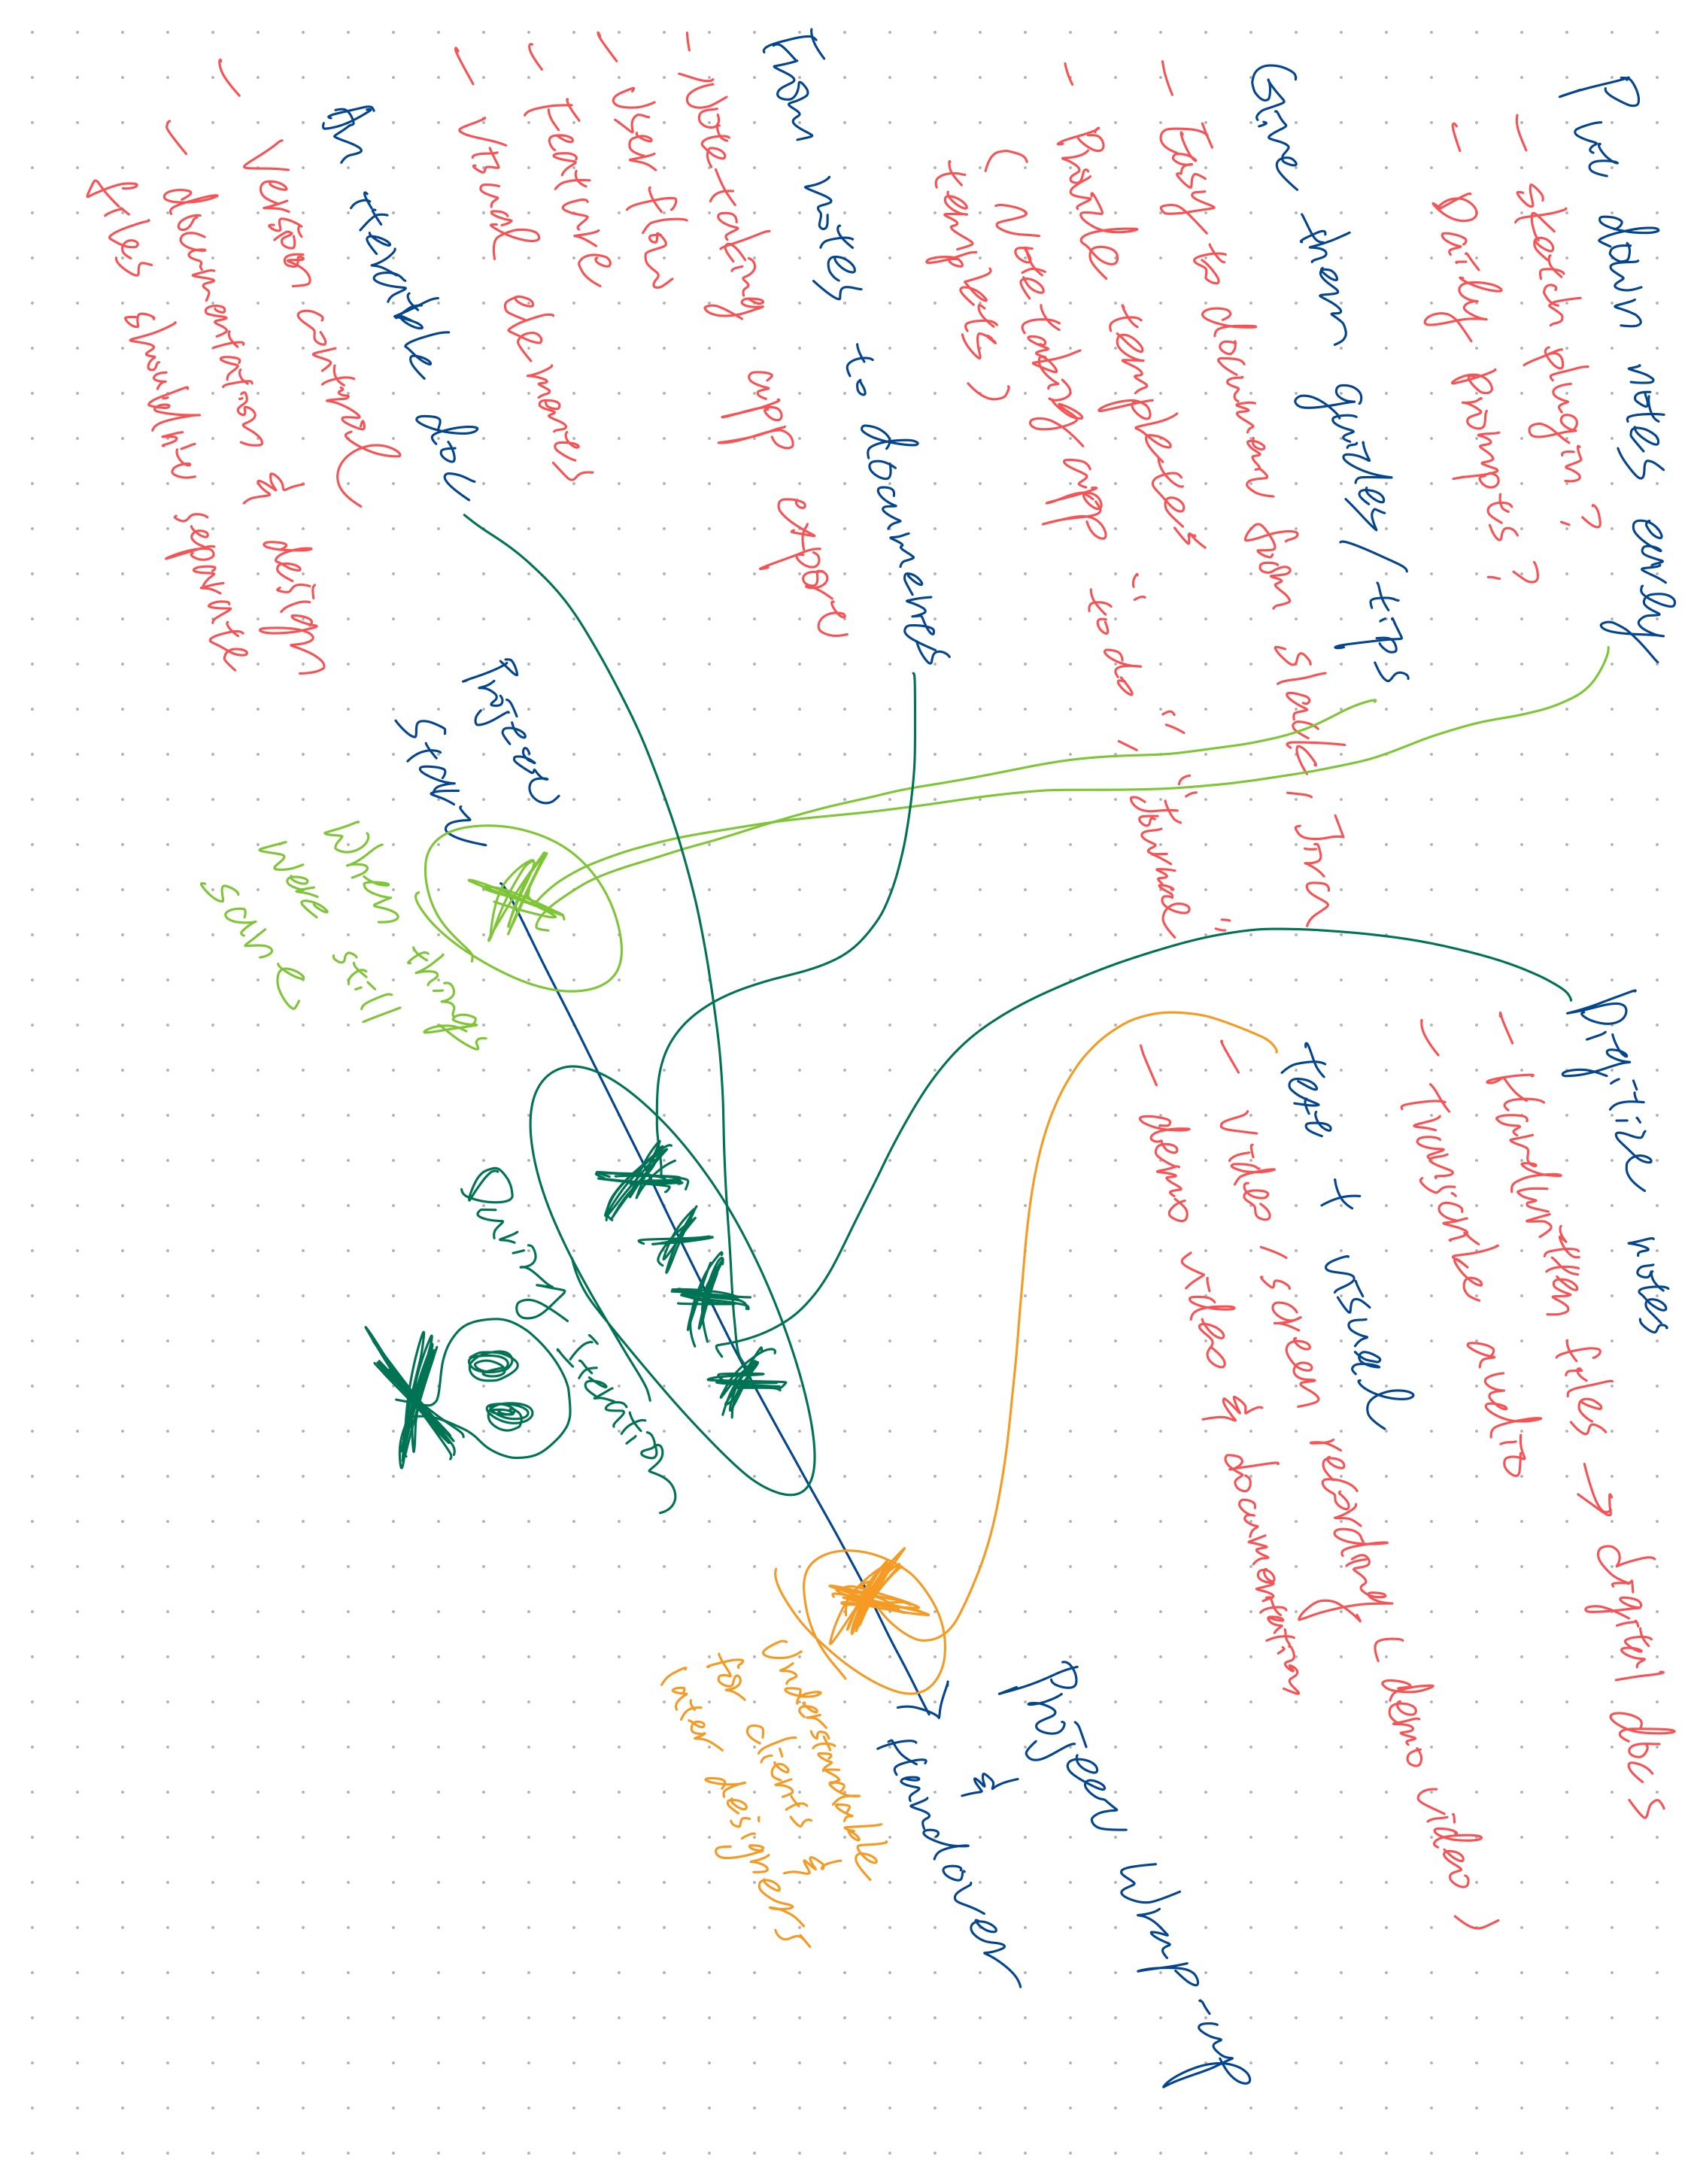 Put down notes early
- sketch plugin?
- Daily prompts?
Give them guides/tips
- Easy to document from slack, Jira
- Provide templates
(Note-taking app "to do", "journal"
templates)
From notes to documents
- Note-taking app export
- User flow
- Feature
- Visual elements
An iterable doc
- Version control
- documentation & design
files should live separate
Digitize notes
- Handwritten files → digital docs
- Transcribe audio
text + visual
- video / screen recording (demo video)
- demo video & documentation
Project Wrap-up
&
Handover
Understandable
for clients &
later designers
During Iteration
Project
Start
When things
were still
sane